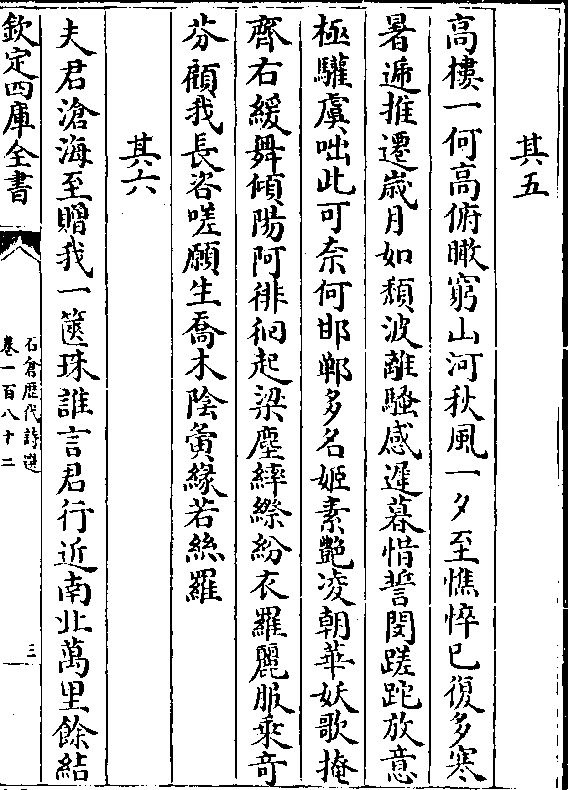 其五
高樓一何高俯瞰窮山河秋風一夕至憔悴已復多寒
暑遞推遷歳月如頹波離騷感遲暮惜誓閔蹉跎放意
極驩虞咄此可奈何邯鄲多名姬素艷凌朝華妖歌掩
齊右緩舞傾陽阿徘徊起梁塵綷縩紛衣羅麗服乘奇
芬顧我長咨嗟願生喬木陰夤緣若絲羅
其六
夫君滄海至贈我一篋珠誰言君行近南北萬里餘結
欽定四庫全書
石倉歴代詩選
卷一百八十二
三